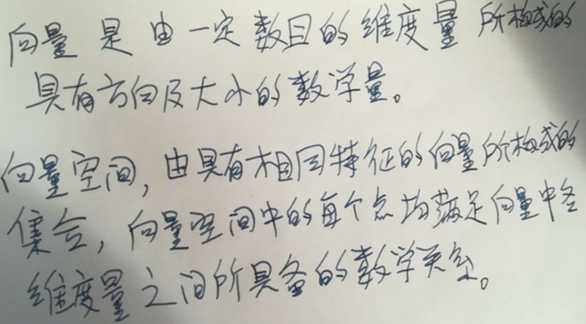 向量 是 由一定数目的维度量 所构成的
具有方向及大小的数学量。
向量空间,由具有相同特征的向量所构成的
集合,向量空间中的每个点均满足向量中各
维度量之间所具备的数学关系。